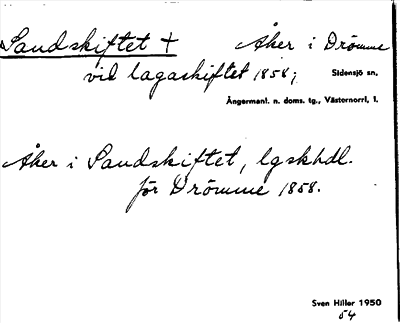 Sandskiftet + Åker i Drömme
vid lagaskiftet 1858; Sidensjö sn,
Ångermanl. n. doms. tg., Västernorrl. l.
Åker i Sandskiftet, lgskhdl.
för Drömme 1858.
Sven Hiller 1950
54